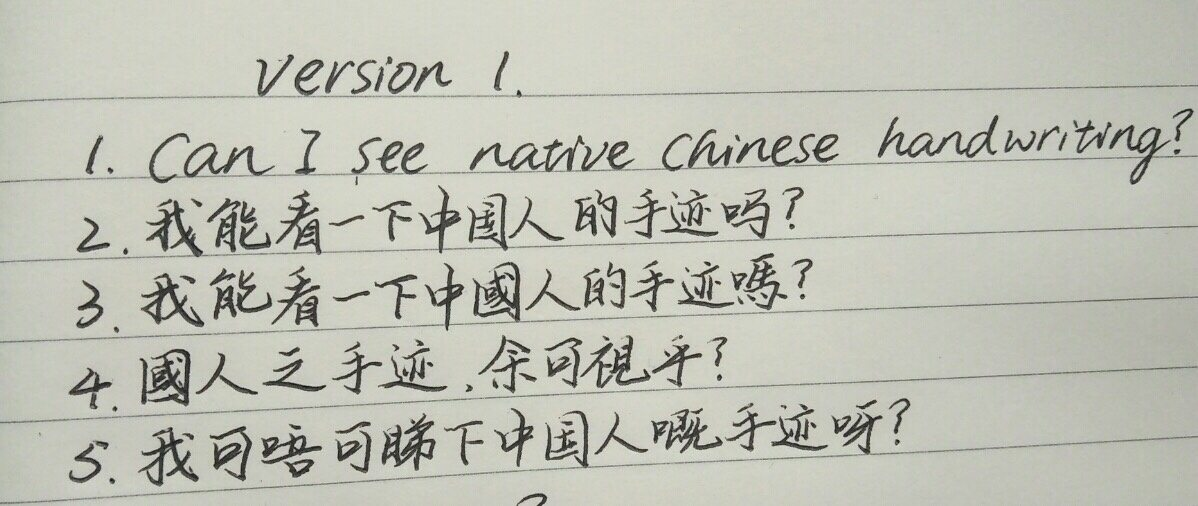 Version 1.
1. Can I see native Chinese handwriting?
2. 我能看一下中国人的手迹吗?
3. 我能看一下中國人的手迹嗎?
4. 國人之手迹,余可視乎?
5. 我可唔可睇下中国人嘅手迹呀?